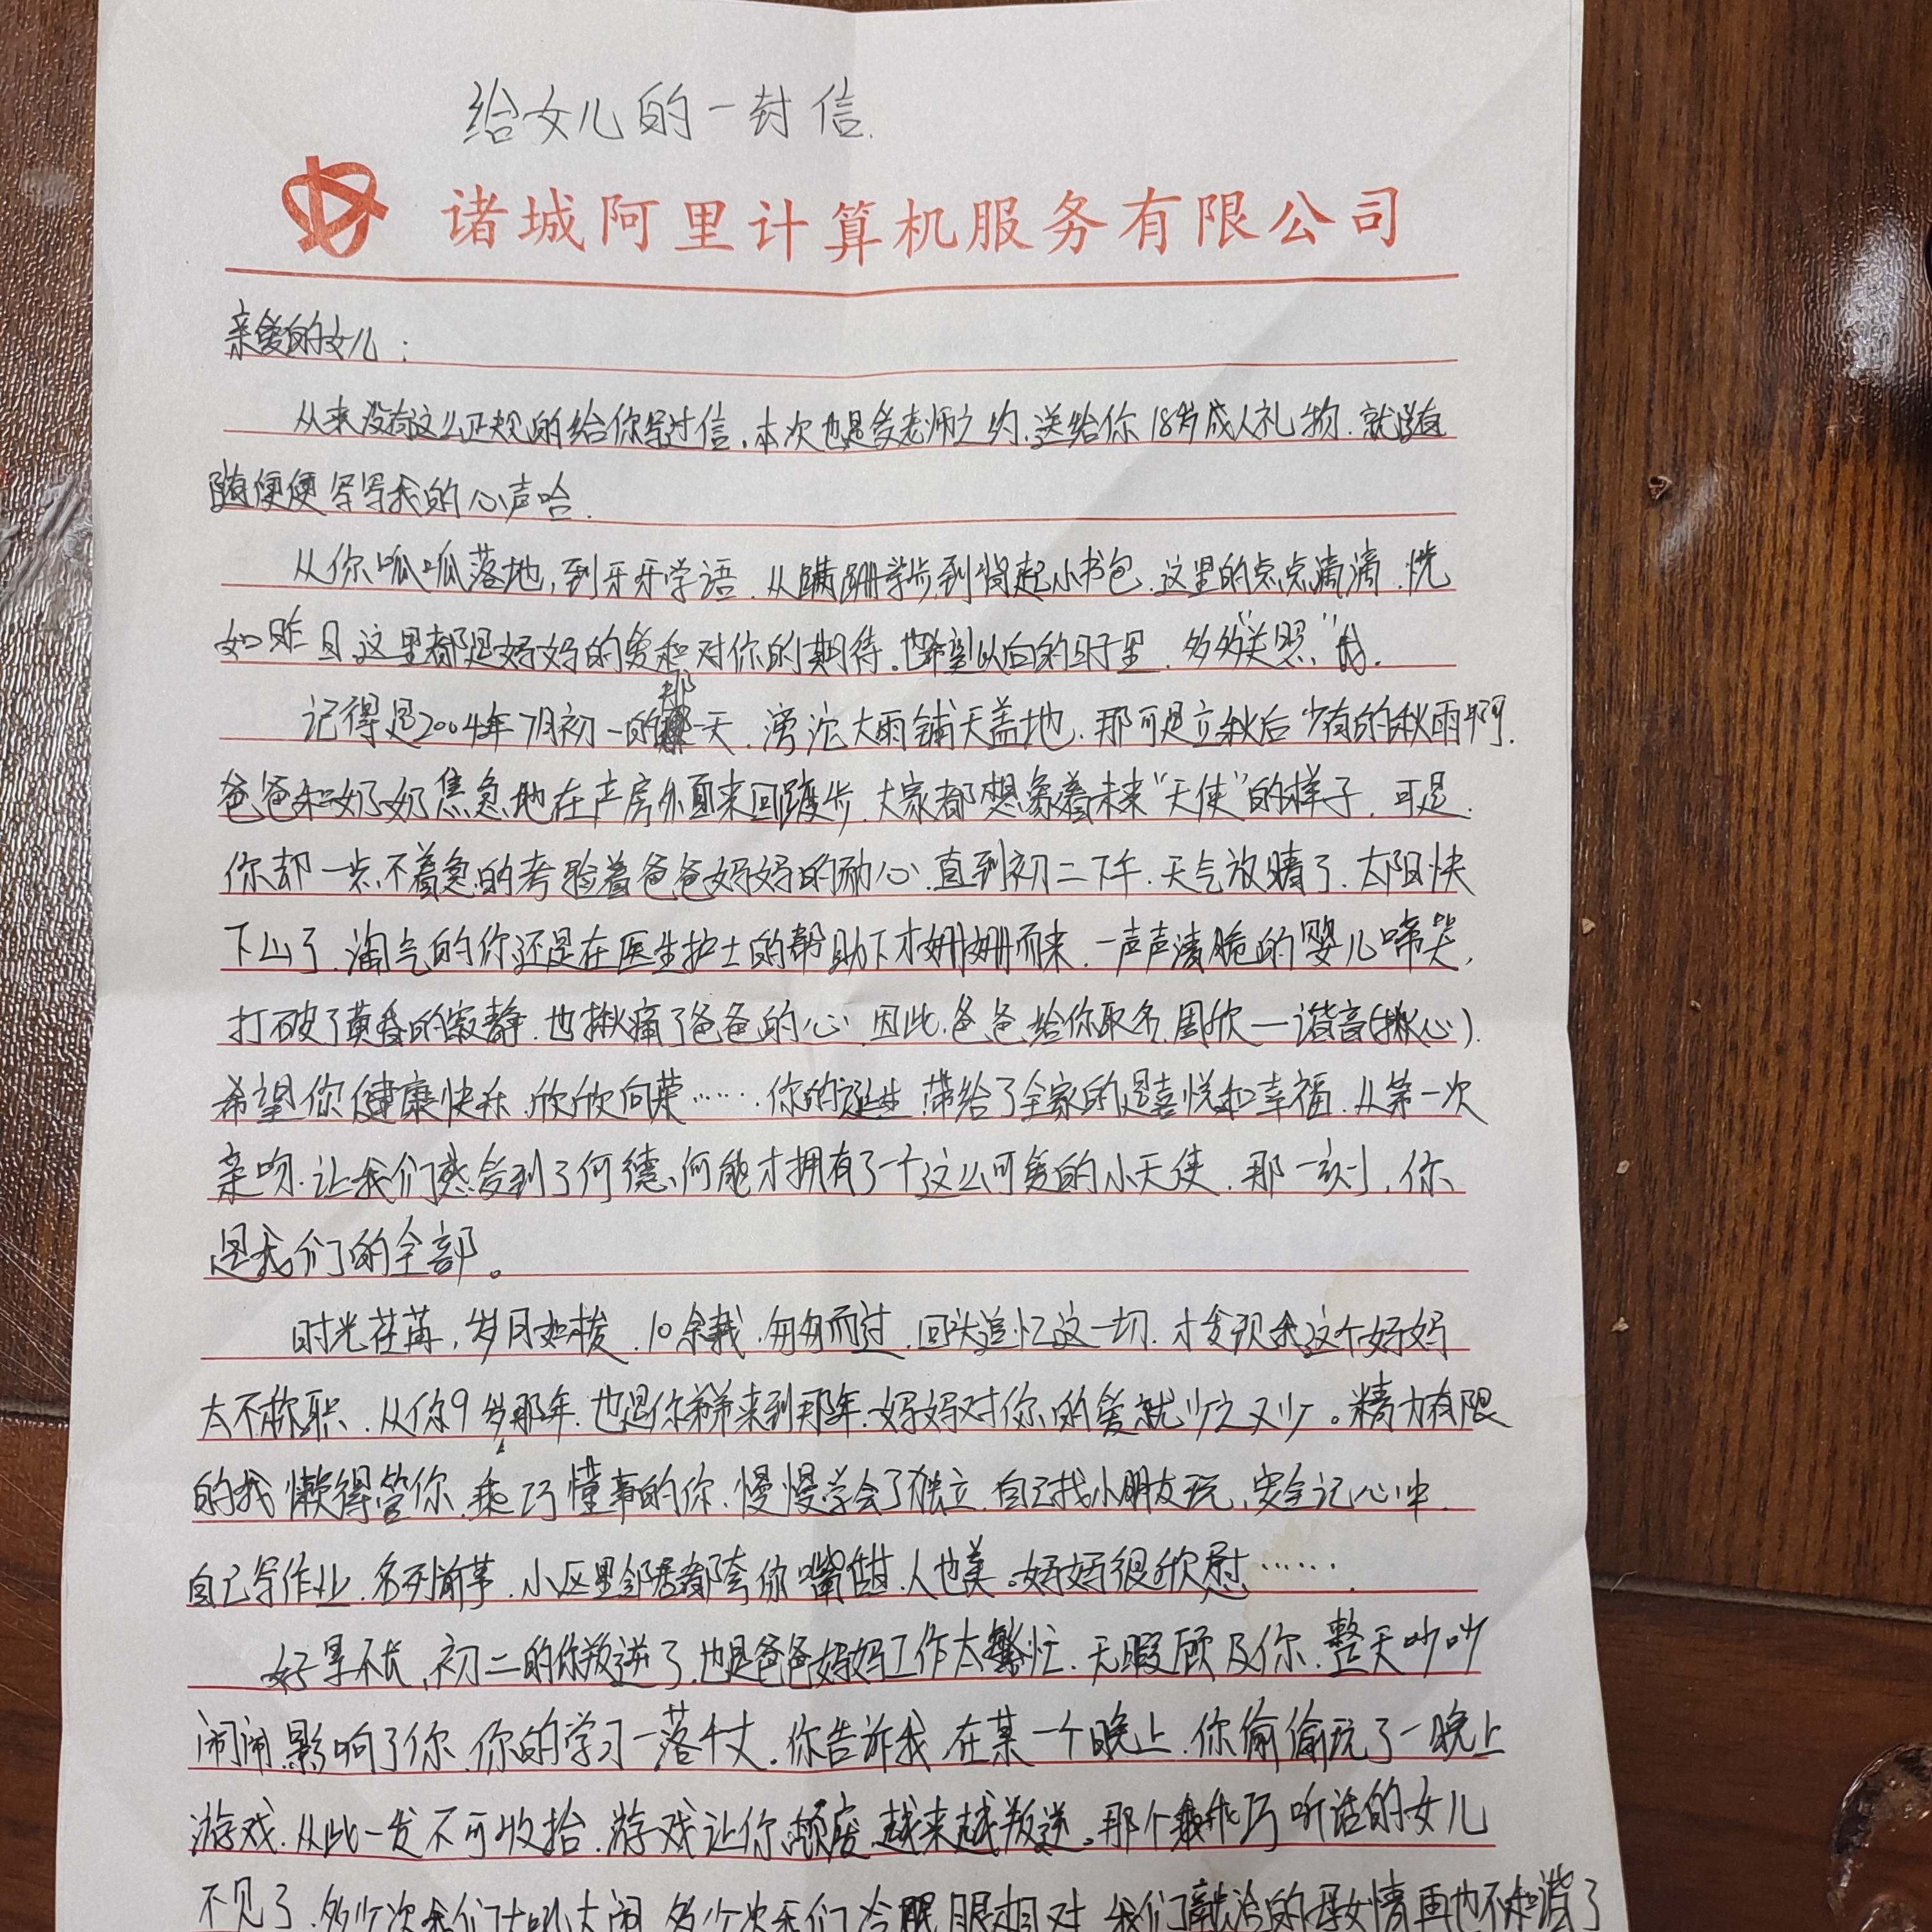 给女儿的一封信.
诸城阿里计算机服务有限公司
亲爱的女儿:
从来没有这么正规的给你写过信,本次也是受老师之约,送给你18岁成人礼物.就随
随便便写写我的心声哈.
从你呱呱落地,到牙牙学语.从蹒跚学步到背起小书包.这里的点点滴滴.恍
如昨日.这里都是妈妈的爱和对你的期待.也希望以后的日子里.多多"关照"我.
记得是2004年7月初一的那一天.滂沱大雨铺天盖地.那可是立秋后少有的秋雨啊.
爸爸和奶奶焦急地在产房外面来回踱步.大家都想象着未来"天使"的样子.可是.
你却一点不着急的考验着爸爸妈妈的耐心.直到初二下午.天气放晴了.太阳快
下山了.淘气的你还是在医生护士的帮助下才姗姗而来.一声声清脆的婴儿啼哭,
打破了黄昏的寂静.也揪痛了爸爸的心.因此.爸爸给你取名.周欣—谐音(揪心).
希望你健康快乐.欣欣向荣…….你的诞生.带给了全家的是喜悦和幸福.从第一次
亲吻.让我们感受到了何德、何能才拥有了一个这么可爱的小天使.那一刻,你
是我们的全部。
时光荏苒,岁月如梭.10余载.匆匆而过.回头追忆这一切.才发现我这个妈妈
太不称职.从你9岁那年.也是你弟弟来到那年.妈妈对你的爱就少之又少。精力有限
的我懒得管你.乖巧懂事的你.慢慢学会了独立.自己找小朋友玩、安全记心中.
自己写作业.名列前茅.小区里邻居都夸你嘴甜.人也美。妈妈很欣慰…….
好景不长,初二的你叛逆了.也是爸爸妈妈工作太繁忙.无暇顾及你.整天吵吵
闹闹.影响了你.你的学习一落千丈。你告诉我.在某一个晚上.你偷偷玩了一晚上
游戏.从此一发不可收拾.游戏让你颓废.越来越叛逆。那个乖巧听话的女儿
不见了.多少次我们大吵大闹.多少次我们冷眼相对.我们融洽的母女情再也不和谐了